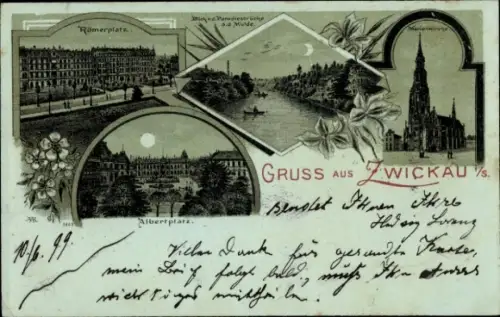 Römerplatz.
Blick v.d. Paradiesbrücke
a.d. Mulde.
Marienkirche
Albertplatz.
GRUSS AUS ZWICKAU i/S.
sendet Ihnen Ihre
10/6. 99.
Vielen Dank für gesandte Karte,
mein Brief folgt bald, muss Ihnen
mittheilen.